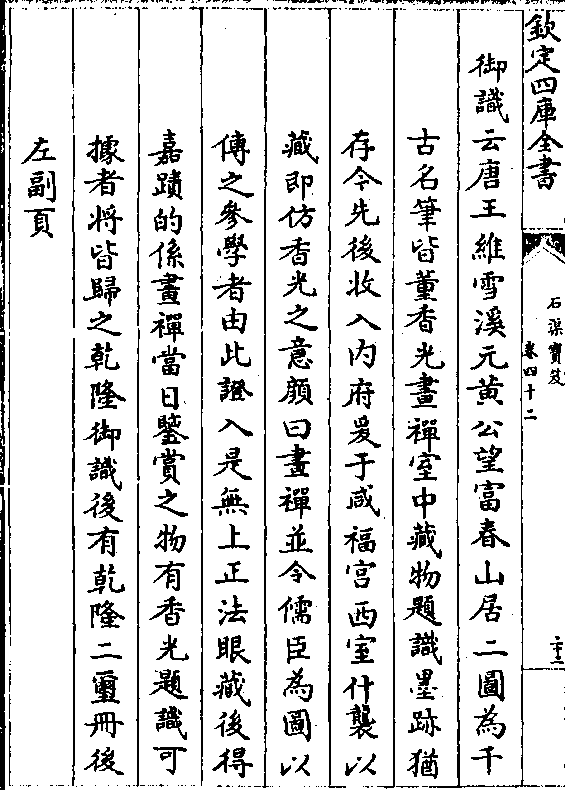 欽定四庫全書
石渠寶笈
卷四十二
二十二
御識云唐王維雪溪元黄公望富春山居二圖為千
古名筆皆董香光畫禪室中藏物題識墨跡猶
存今先後收入内府爰于咸福宫西室什襲以
藏即仿香光之意顔曰畫禪並令儒臣為圖以
傳之參學者由此證入是無上正法眼藏後得
嘉蹟的係畫禪當日鑒賞之物有香光題識可
據者將皆歸之乾隆御識後有乾隆二璽冊後
左副頁